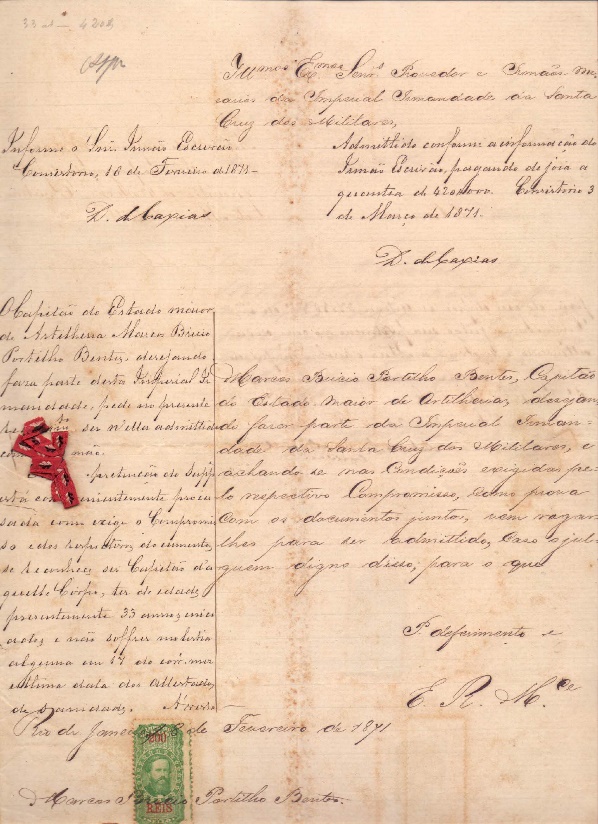 33 a —
Illmos Exmos Senrs Provedor e Irmãos Me
sarios da Imperial Irmandade da Santa
Cruz dos Militares,
Informe o Snr. Irmão Escrivão
Consistorio, 18 de Fevreiro de 1871 —
D. de Caxias
Admittido conforme a informação do
Irmão Escrivão, pagando de joia a
quantia de 420$000. Consistorio 3
de Março de 1871.
D. de Caxias
O Capitão do Estado maior
de Artilheria Marcos Bricio
Portilho Bentes, desejando
fazer parte desta Imperial Ir
mandade, pede no presente
ser n'ella admittido
mão.
A petição do Supp
está convenientemente proces
sada como exige o Compromis
so e dos respectivos documentos
se reconhece ser Capitão da
quelle Corpo, ter de idade
presentemente 33 annos,
e não soffrer molestia
alguma em 17 do corr. mez
ultima data dos Attestados
de sanidade.
Marcos Bricio Portilho Bentes, Capitão
do Estado Maior de Artilheria, desejan
do fazer parte da Imperial Irman-
dade da Santa Cruz dos Militares, e
achando se nas Condições exigidas pe-
lo respectivo Compromisso, como prova
com os documentos juntos, vem rogar-
lhes para ser admittido, caso o jul-
guem digno disso, para o que
P. deferimento e
E. R. M.ce
Rio de Janeiro 8 de Fevereiro de 1871
200
REIS
Marcos Bricio Portilho Bentes.